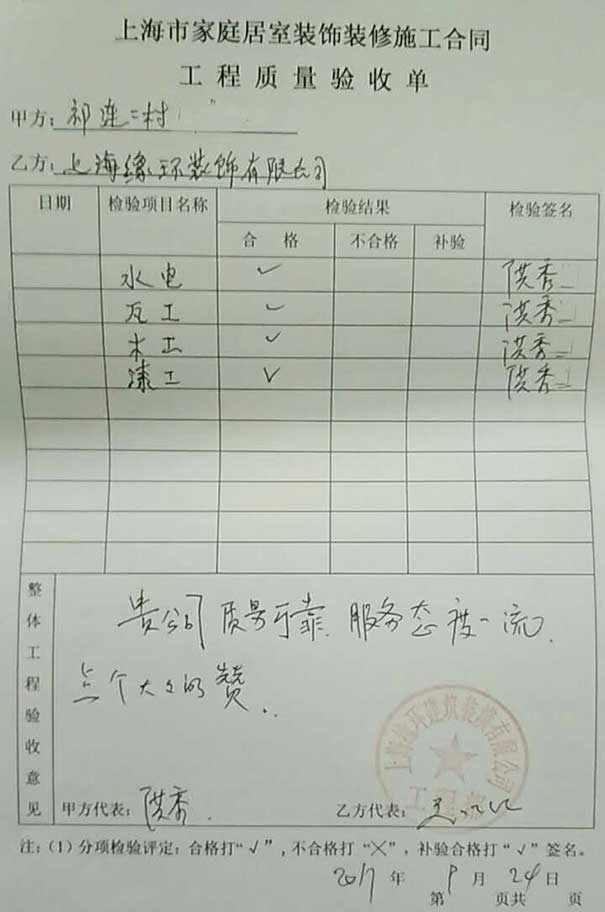 上海市家庭居室装饰装修施工合同
工程质量验收单
甲方：祁连二村
乙方：上海缘环装饰有限公司
日期 检验项目名称 检验结果 检验签名
合格 不合格 补验
水电 ✓ 洪秀
瓦工 ✓ 洪秀
木工 ✓ 洪秀
漆工 ✓ 洪秀
整体工程验收意见
贵公司质量可靠 服务态度一流.
点个大大的赞.
上海缘环建筑装潢有限公司
甲方代表：洪秀.
乙方代表：
注：（1）分项检验评定：合格打“√”，不合格打“×”，补验合格打“√”签名。
2017年9月24日
第 页共 页